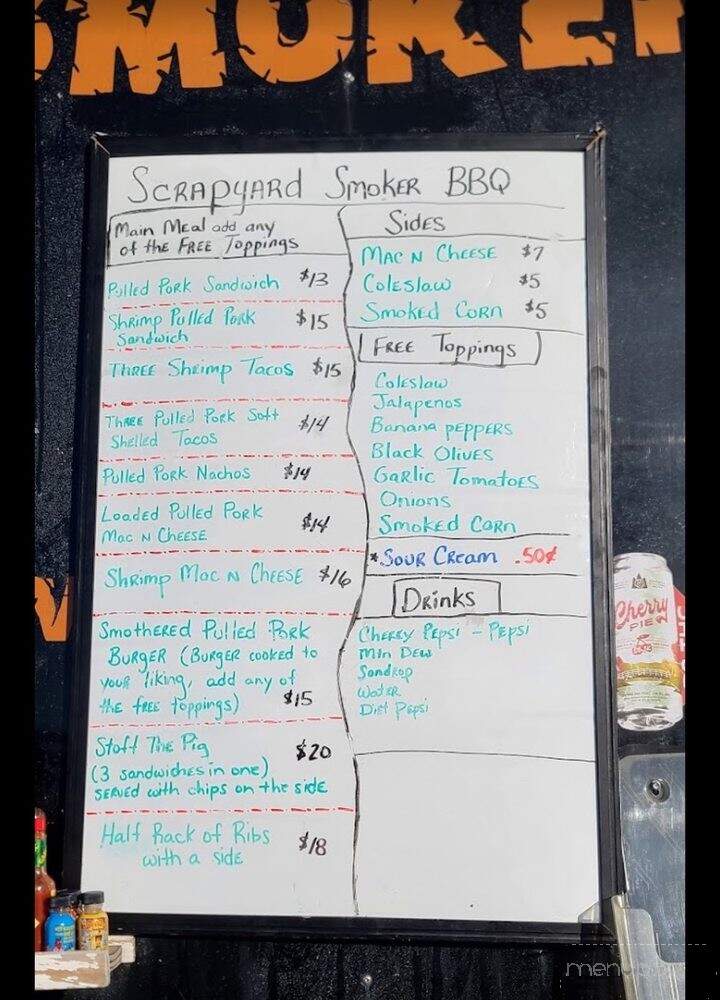 SMOKER
SCRAPYARD SMOKER BBQ
Main Meal add any
of the FREE Toppings
Pulled Pork Sandwich $13
Shrimp Pulled Pork
Sandwich $15
THREE Shrimp Tacos $15
Three Pulled Pork Soft
Shelled Tacos $14
Pulled Pork Nachos $14
Loaded Pulled Pork
Mac N Cheese $14
Shrimp Mac N Cheese $16
Smothered Pulled Pork
Burger (Burger cooked to
your liking, add any of
the free toppings) $15
Stoff The Pig $20
(3 sandwiches in one)
served with chips on the side
Half Rack of Ribs
with a side $18
Sides
Mac N Cheese $7
Coleslaw $5
Smoked Corn $5
FREE Toppings
Coleslaw
Jalapenos
Banana peppers
Black Olives
Garlic Tomatoes
Onions
Smoked Corn
*Sour Cream .50¢
Drinks
Cherry Pepsi - Pepsi
Mtn Dew
Sondrop
Water
Diet Pepsi
Cherry
PIE